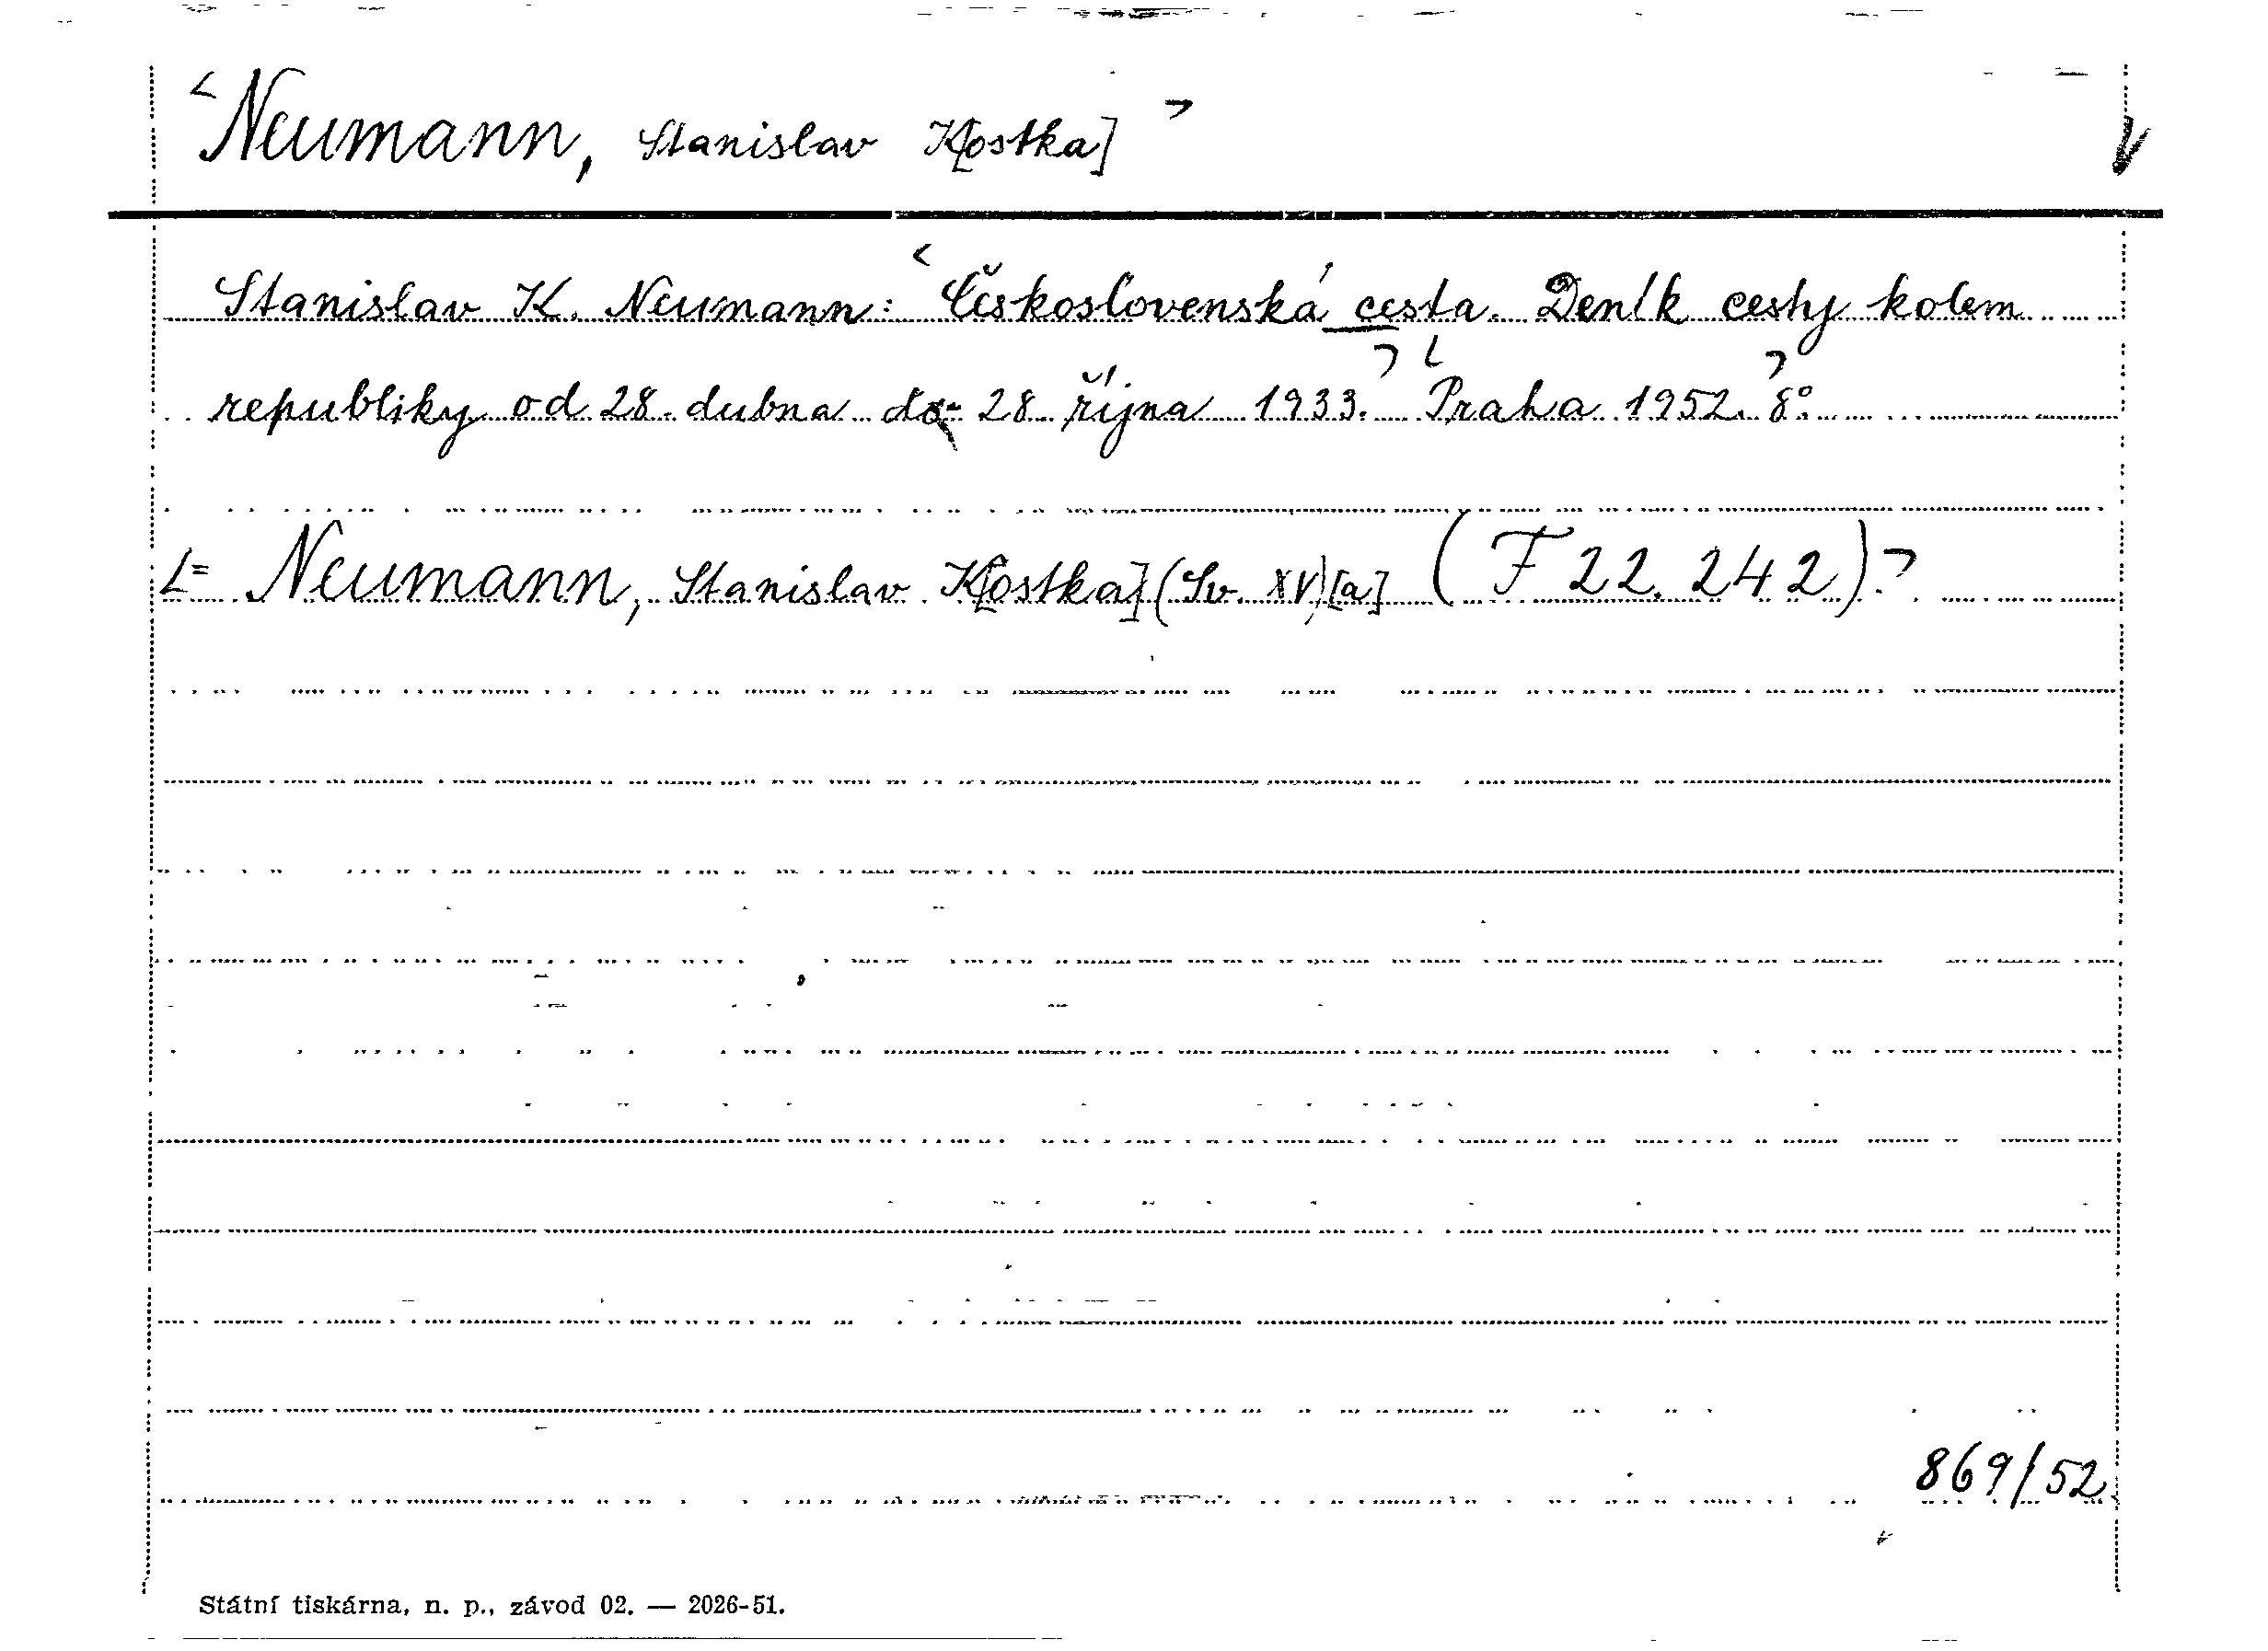 <Neumann, Stanislav K[ostka]>
Stanislav K. Neumann: <Československá cesta. Deník cesty kolem
republiky od 28. dubna do 28. října 1933.> <Praha 1952.> 8°.
<= Neumann, Stanislav K[ostka] (Sv. XV)[a] (F 22.242)>
869/52
Státní tiskárna, n. p., závod 02. — 2026-51.